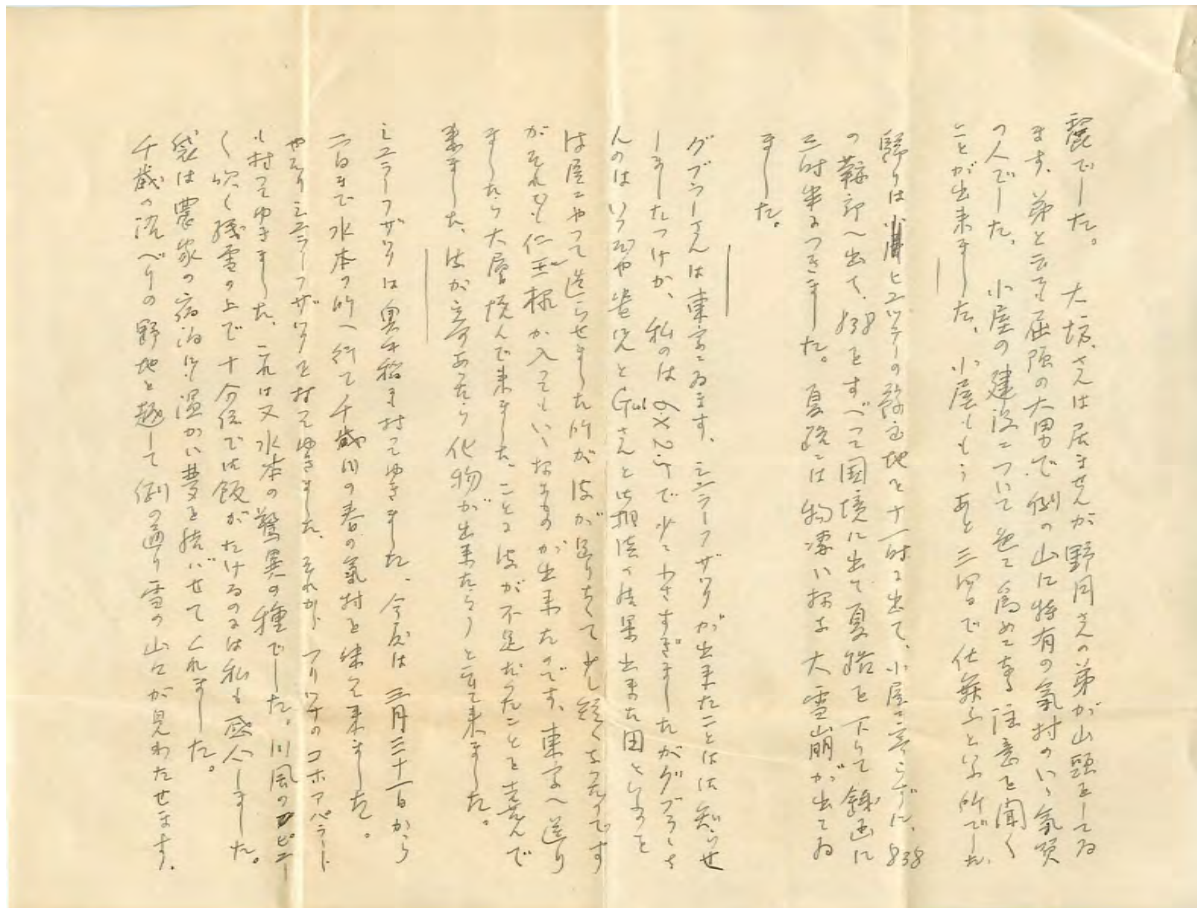 麗でした。 大坊さんは居ませんが野月さんの弟が山頭をしてゐ
ます、弟と云っても屈強の大男で、例の山に特有の氣持のいゝ氣質
の人でした。小屋の建設について色々為めになる注意を聞く
ことが出来ました。小屋ももうあと三四日で仕舞ふといふ所でした。
歸りはヒュッテの敷地を十一時に出て、小屋に寄らずに、838
の鞍部へ出て、838をすべって国境に出て夏路を下りて錢函に
三時半につきました。夏路には物凄い様な大雪崩が出てゐ
ました。
グブラーさんは東京にゐます、シュラーフザックが出来たことは御知らせ
しましたつけか、私のは 尺で少々小さすぎましたがグブラーさ
んのはいつぞや先生とGubさんと御相談の結果出来た図といふのを
は屋にやって造らせました所が が足りなくて少し短くなったのです
がそれでも仁王様が入ってもいゝ様なのが出来たのです、東京へ送り
ましたら大層悦んで来ました、ことに が不足だったことを喜んで
来ました、 が充分あったら化物が出来たらうと云って来ました。
シュラーフザックは奥手稲に持ってゆきました、今度は三月三十一日から
二日まで水本の所へ行って千歳川の春の氣持を味って来ました。
やはりシュラーフザックを持ってゆきました、それから のコホアパラート
も持ってゆきました、これは又水本の驚異の種でした。川風の
く吹く残雪の上で十分位で御飯がたけるのには私も感心しました。
袋は農家の宿泊に温かい夢を結ばせてくれました。
千歳の流べりの野地を越して例の通り雪の山々が見わたせます、